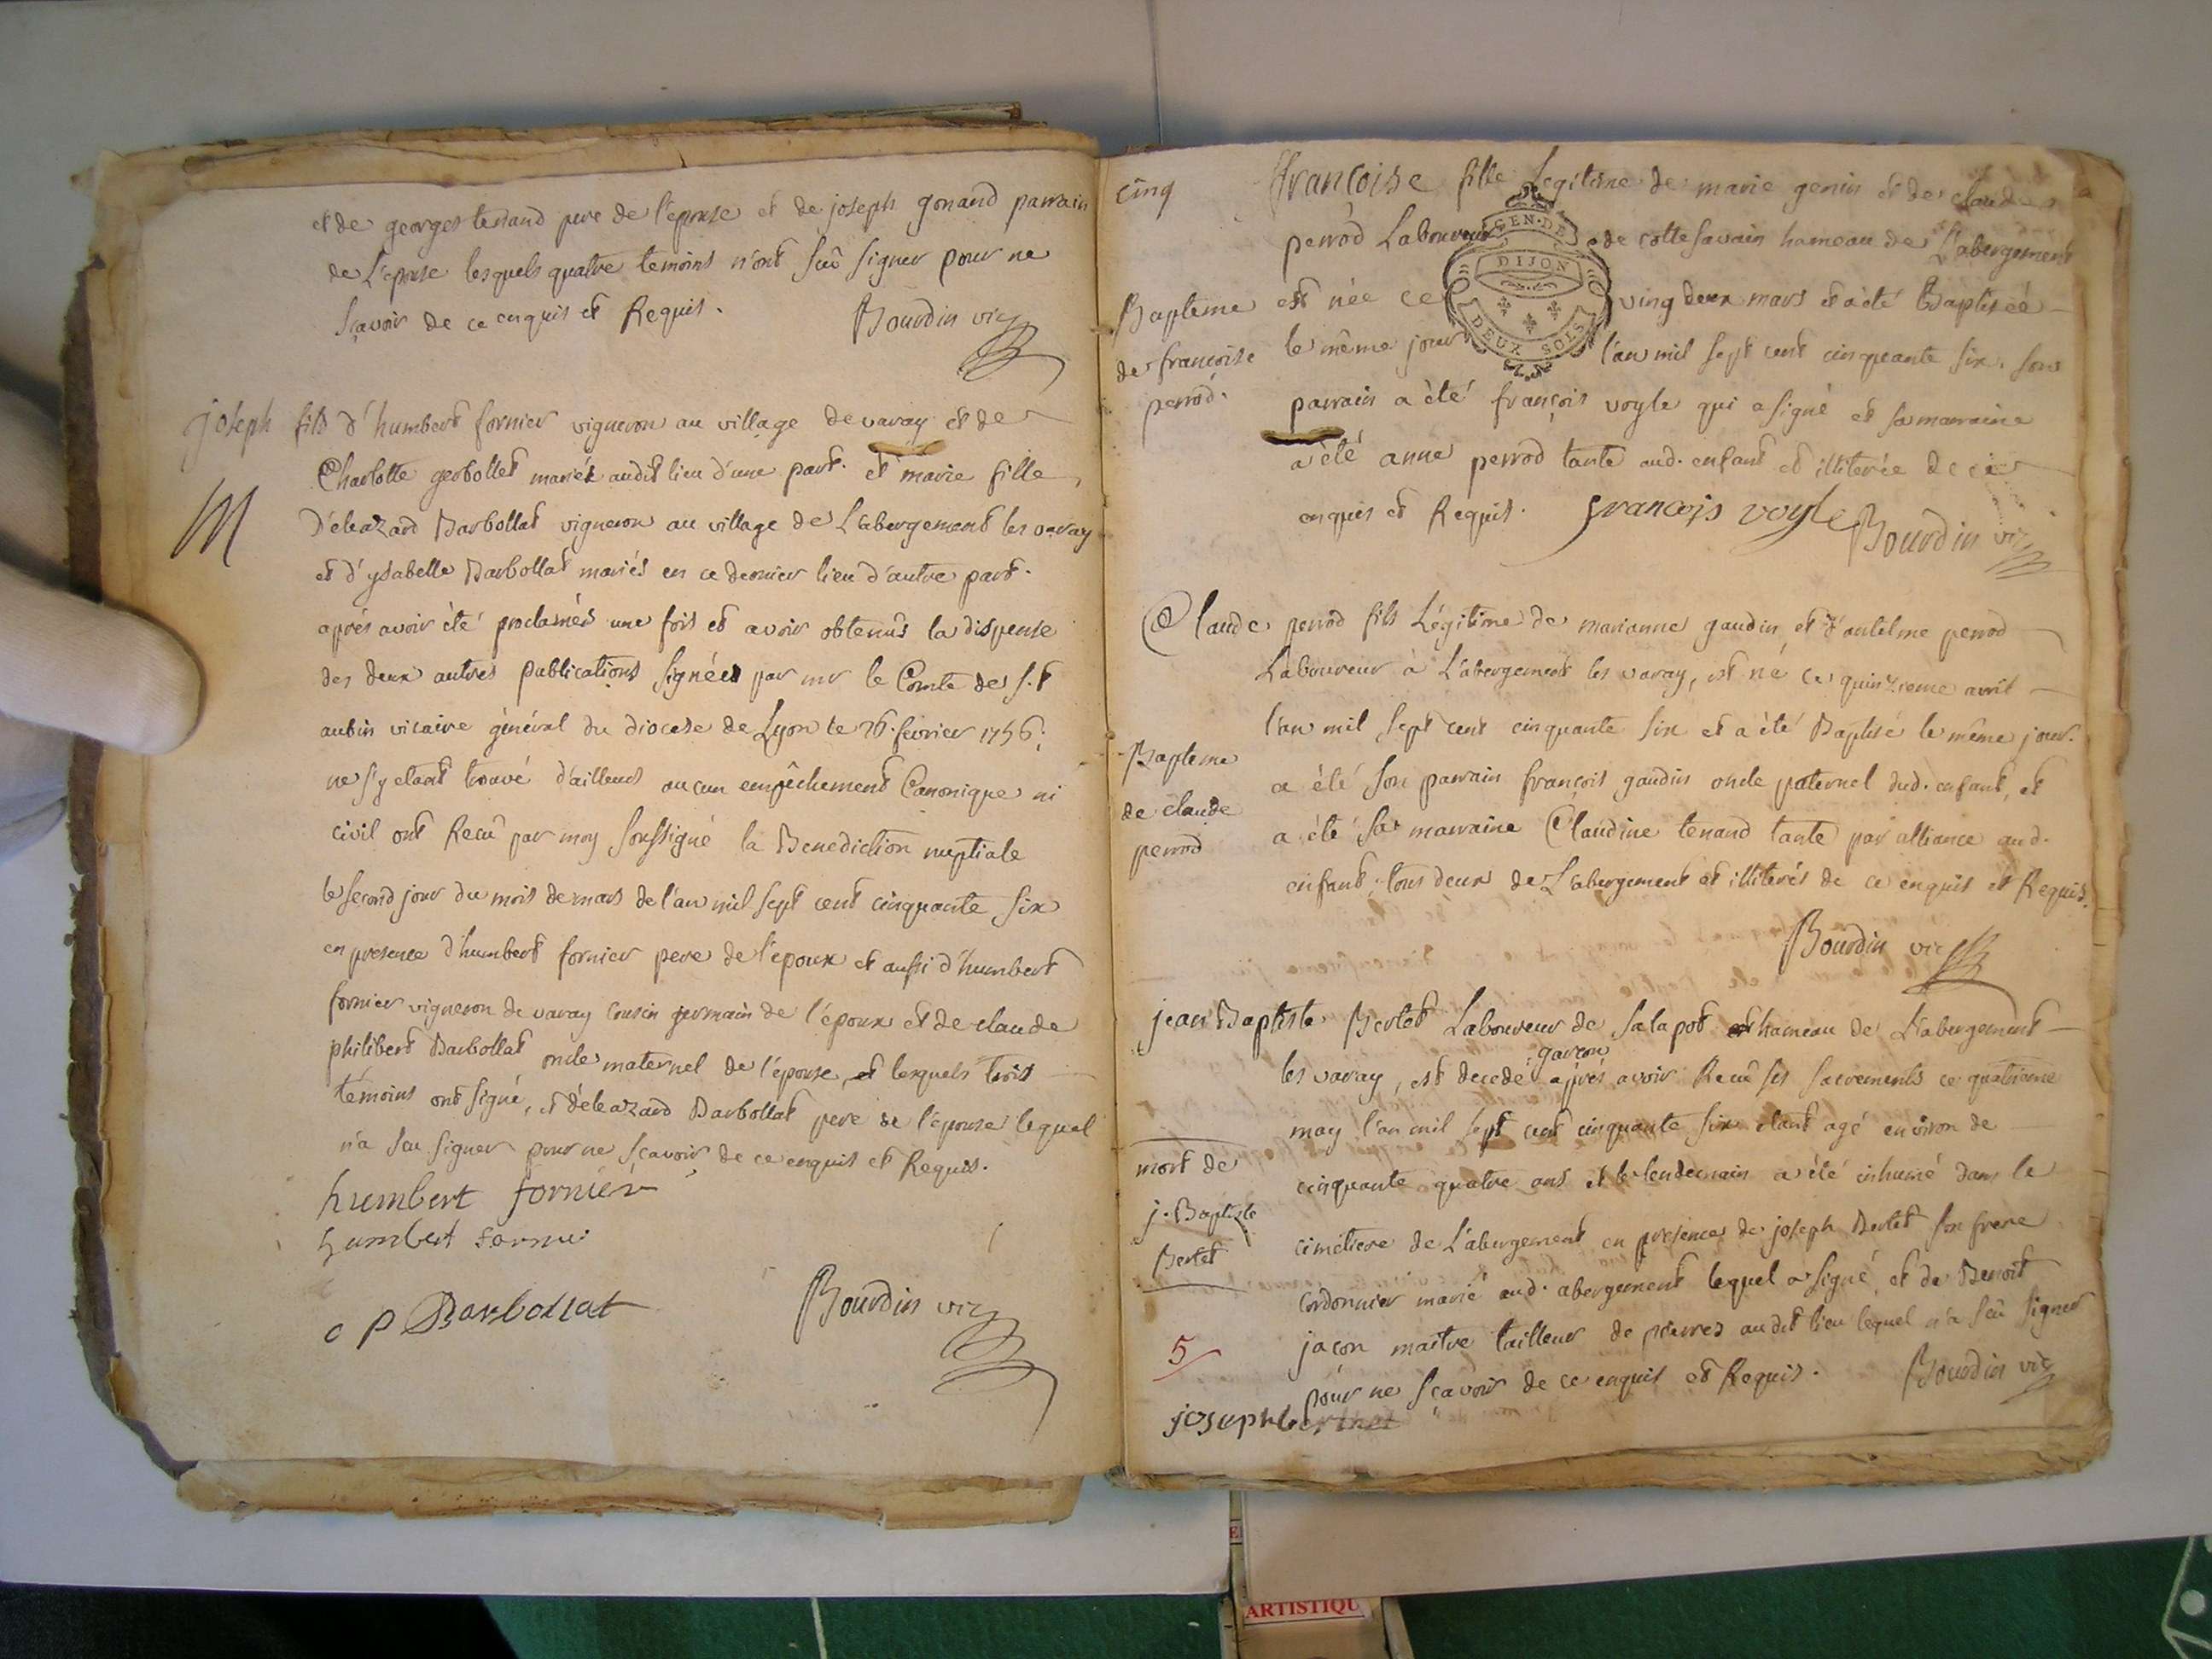 et de georges tenand pere de l'epouse et de joseph gonand parrain
de L'epouse lesquels quatre temoins n'ont sçû signer pour ne
sçavoir de ce enquis et Requis. Bourdin vic
joseph fils d'humbert fornier vigneron au village de varay et de
M
Charlotte gerbollet mariés audit lieu d'une part. et marie fille
D'eleazard Barbollat vigneron au village de L'abergement les varay
et d'ysabelle Barbollat mariés en ce dernier lieu d'autre part.
aprés avoir été proclamés une fois et avoir obtenus la dispense
des deux autres publications signées par mr le Comte de s.t
aubin vicaire général du diocese de Lyon le 26. fevrier 1756;
ne s'y etant trouvé d'ailleurs aucun empêchement Canonique ni
civil ont Recû par moy soussigné la Benediction nuptiale
le second jour du mois de mars de l'an mil sept cent cinquante six
en presence d'humbert fornier pere de l'epoux et aussi d'humbert
fornier vigneron de varay cousin germain de l'époux et de claude
philibert Barbollat oncle maternel de l'épouse, et lesquels trois
témoins ont signé, et d'eleazard Barbollat pere de l'epouse lequel
n'a sçu signer pour ne sçavoir de ce enquis et Requis.
humbert fornier
humbert fornie
c p Barbollat Bourdin vic
cinq
françoise fille Legitime de marie genin et de claude
perrod Laboureur de cottesavain hameau de L'abergement
GEN. DE DIJON
DEUX SOLS
Bapteme
de françoise
perrod.
est née ce vingt deux mars et a été Baptisée
le même jour l'an mil sept cent cinquante six. son
parrain a été françois voyle qui a signé et sa marraine
a été anne perrod tante aud. enfant et illiterée de ce
enquis et Requis. francois voyle Bourdin vic
Claude perrod fils Légitime de marianne gaudin et d'antelme perrod
Laboureur à L'abergement les varay, est né ce quinzieme avril
l'an mil sept cent cinquante six et a été Baptisé le même jour.
Bapteme
de claude
perrod
a été son parrain françois gaudin oncle paternel dud. enfant, et
a été sa marraine Claudine tenand tante par alliance aud.
enfant. tous deux de L'abergement et illiterés de ce enquis et Requis.
Bourdin vic
jean Baptiste Bertet Laboureur de salapot hameau de L'abergement
garçon
les varay, est decedé aprés avoir Recû ses sacrements ce quatrieme
may l'an mil sept cent cinquante six etant agé environ de
mort de
j. Baptiste
Bertet
cinquante quatre ans et le lendemain a été inhumé dans le
cimetiere de L'abergement en presence de joseph Bertet son frere
cordonnier marié aud. abergement lequel a signé, et de Benoit
5
jaçon maitre tailleur de pierres audit lieu lequel n'a sçû signer
pour ne sçavoir de ce enquis et Requis. Bourdin vic
joseph
ARTISTIQU